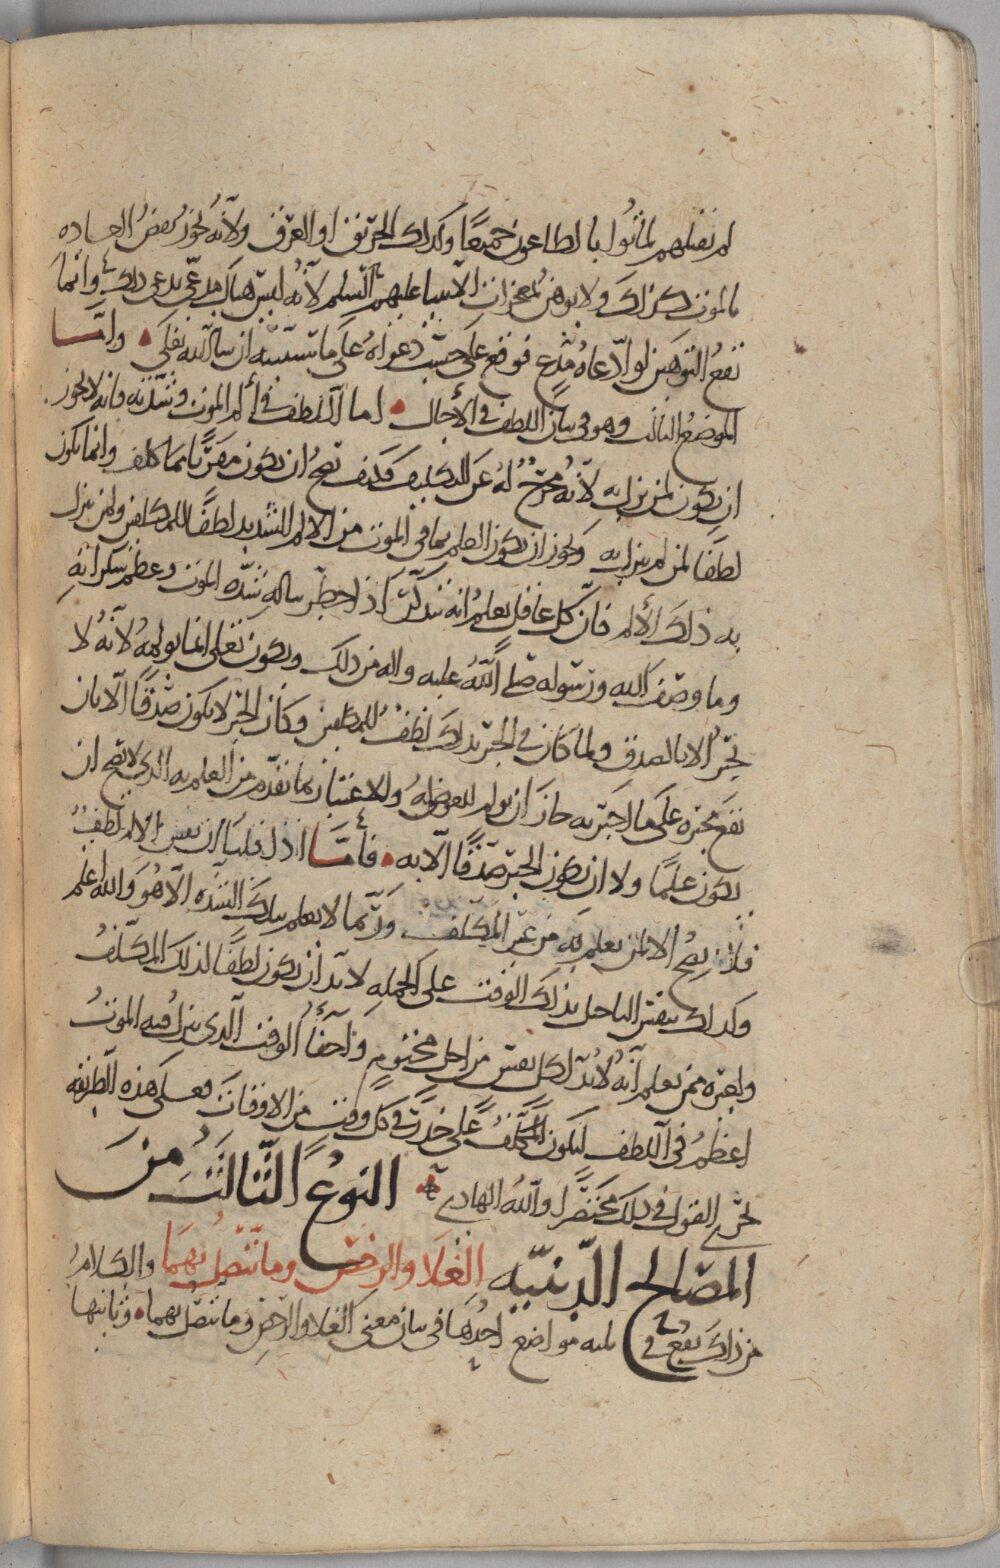 لم نقتلهم لماتوا بالطاعون جميعًا وكذلك الحريق او الغرق ولانه نجوز بعض العباده
بالموت كذلك ولا يوهن معجزات الانبيا عليهم السلم لانه ليس هناك مدعي يدعي ذلك وانما
تقع التوهين لو ادعاه مدع فوقع على حسب دعواه على ما نستبينه ان شا الله تعلى • واما
الموضع الثالث وهو في بيان اللطف في الآجال • اما اللطف في ألم الموت وشدته فانه لا يجوز
ان يكون لمن نزل به لانه مخرج له عن التكليف فكيف يصح ان يكون مقربًا مما كلف وانما يكون
لطفا لمن لم ينزل به ويجوز ان يكون العلم بما في الموت من الالم الشديد لطفًا للمكلفين ولمن ينزل
به ذلك الألم فان كل عاقل يعلم انه يتذكر اذا خطر بباله شده الموت وعظم سكراته
وما وصف الله ورسوله صلى الله عليه واله من ذلك ويكون تعلى انما يولمه لانه لا
يخبر الا بالصدق ولما كان في الخبر بذلك لطف للمكلفين وكان الخبر لا يكون صدقًا الا بان
يقع مخبره على ما اخبر به جاز ان يولم للعوض وللاعتبار بما تقدم من العلم به الذي لا يصح ان
يكون علمًا ولا ان يكون الخبر صدقًا الا به • فأما اذا قلنا ان نفس الالم لطف
فلن يصح الا لمن يعلم به من غير المكلف وربما لا يعلم بتلك الشده الا هو والله اعلم
وكذلك نفس الاجل بذلك الوقت على الجمله لا بد ان يكون لطفًا لذلك المكلف
ولغيره ممن يعلم انه لا بد لكل نفس من اجل محتوم واخفأ الوقت الذي ينزل فيه الموت
اعظم في اللطف ليكون المكلف على حذر في كل وقت من الاوقات فعلى هذه الطريقه
نجري القول في ذلك مختصرا والله الهادي • النوع الثالث من
المصالح الدينيه الغلا والرخص وما يتصل بهما والكلام
من ذلك يقع في ثلثه مواضع احدها في بيان معنى الغلا والرخص وما يتصل بهما • وثانيها